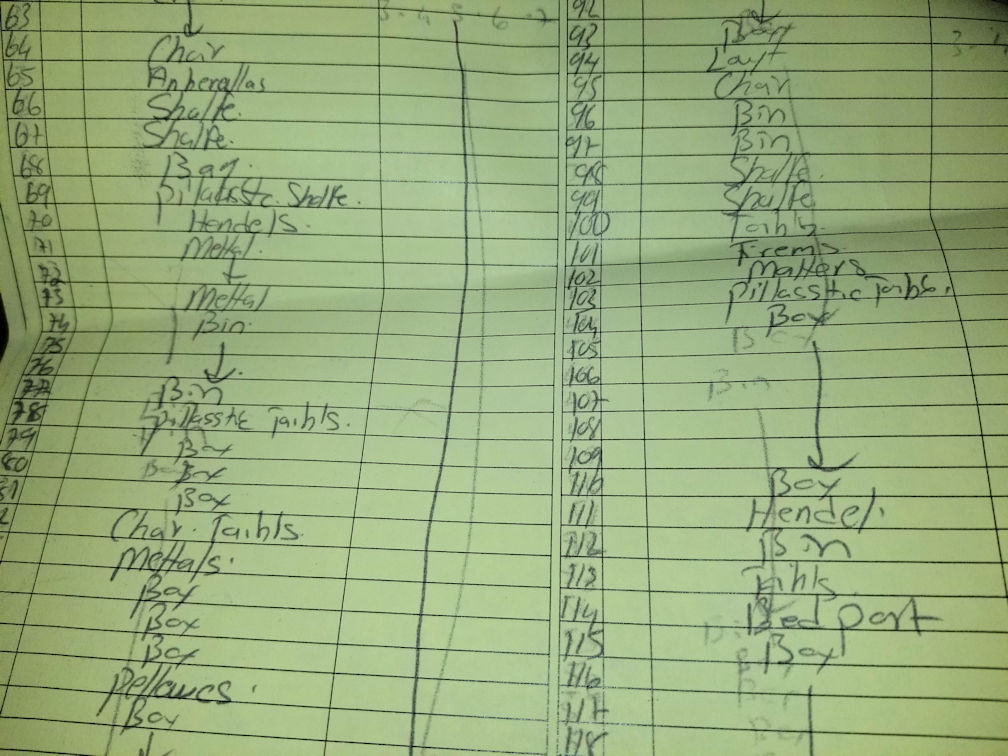 63
64 Chair
65 Anberallas
66 Shalfe.
67 Shalfe.
68 Bag.
69 Pillasstc. Shalfe.
70 Hendels.
71 Mettal.
72
73 Mettal
74 Bin.
75
76
77 Bin
78 Pillasstic Taibls.
79 Box
80 Box
81 Box
Char. Taibls.
Mettals.
Box
Box
Box
Pellowes.
Box
3 - 4 5 - 6 - 7
92
93 Box
94 Layt
95 Chair
96 Bin
97 Bin
98 Shalfe.
99 Shalfe
100 Taibls.
101 Frems.
102 Matters
103 Pillasstic Taibls.
104 Box
105
106
107
108
109
110 Box
111 Hendel.
112 Bin
113 Taibls
114 Bed Part
115 Box
116
117
118